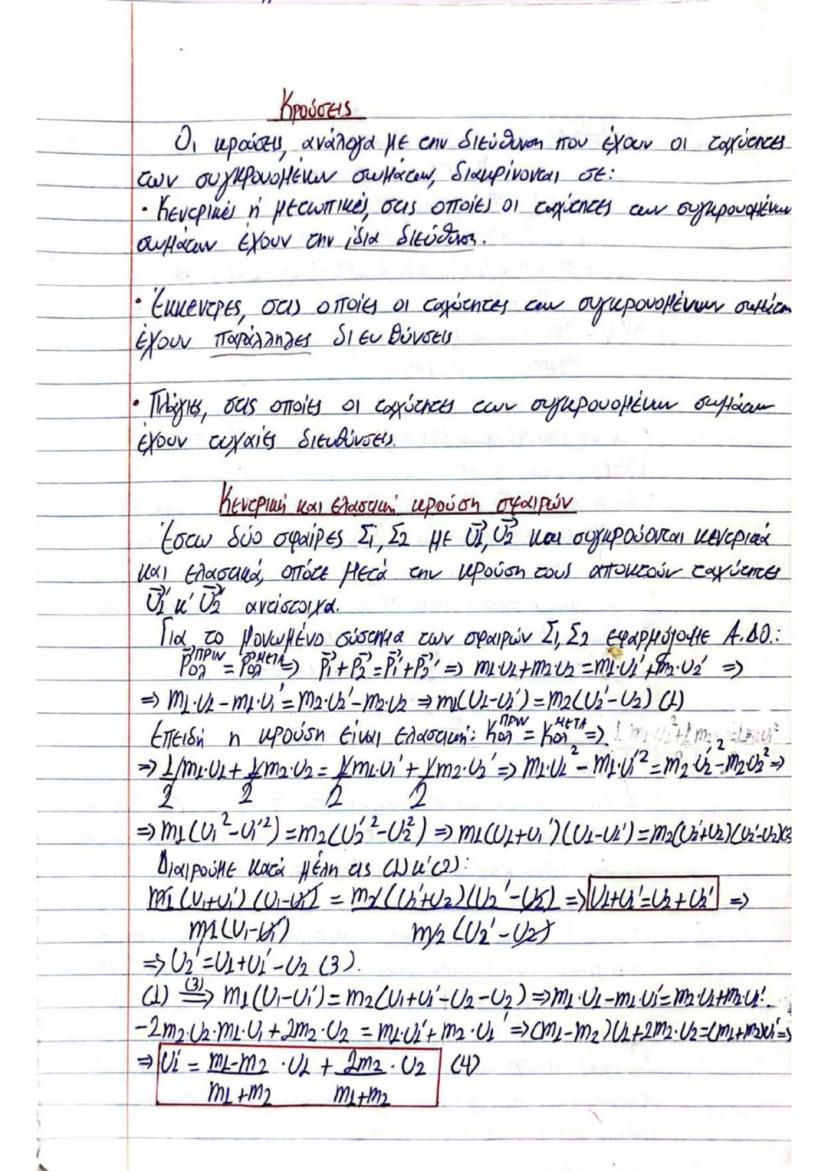 Κρούσεις
Οι κρούσεις, ανάλογα με την διεύθυνση που έχουν οι ταχύτητες
των συγκρουομένων σωμάτων, διακρίνονται σε:
· Κεντρικές ή μετωπικές, στις οποίες οι ταχύτητες των συγκρουομένων
σωμάτων έχουν την ίδια διεύθυνση.
· Έκκεντρες, στις οποίες οι ταχύτητες των συγκρουομένων σωμάτων
έχουν παράλληλες διευθύνσεις
· Πλάγιες, στις οποίες οι ταχύτητες των συγκρουομένων σωμάτων
έχουν τυχαίες διευθύνσεις.
Κεντρική και ελαστική κρούση σφαιρών
Έστω δύο σφαίρες Σ1, Σ2 με υ⃗1, υ⃗2 και συγκρούονται κεντρικά
και ελαστικά, οπότε μετά την κρούση τους αποκτούν ταχύτητες
υ⃗1' κ' υ⃗2' αντίστοιχα.
Για το μονωμένο σύστημα των σφαιρών Σ1, Σ2 εφαρμόζουμε Α.Δ.Ο.:
P⃗ολ ΠΡΙΝ = P⃗ολ ΜΕΤΑ ⇒ P⃗1 + P⃗2 = P⃗1' + P⃗2' ⇒ m1υ1 + m2υ2 = m1·υ1' + m2·υ2' ⇒
⇒ m1·υ1 - m1·υ1' = m2·υ2' - m2·υ2 ⇒ m1(υ1-υ1') = m2(υ2'-υ2) (1)
Επειδή η κρούση είναι ελαστική: Kολ ΠΡΙΝ = Kολ ΜΕΤΑ ⇒
⇒ 1/2 m1·υ1 + 1/2 m2·υ2 = 1/2 m1·υ1' + 1/2 m2·υ2' ⇒ m1·υ1² - m1·υ1'² = m2·υ2'² - m2υ2² ⇒
⇒ m1(υ1²-υ1'²) = m2(υ2'²-υ2²) ⇒ m1(υ1+υ1')(υ1-υ1') = m2(υ2'+υ2)(υ2'-υ2)
Διαιρούμε κατά μέλη τις (1) κ' (2):
m1(υ1+υ1')(υ1-υ1') / m1(υ1-υ1') = m2(υ2'+υ2)(υ2'-υ2) / m2(υ2'-υ2) ⇒ υ1+υ1'=υ2+υ2' ⇒
⇒ υ2' = υ1+υ1'-υ2 (3).
(1) (3)⇒ m1(υ1-υ1') = m2(υ1+υ1'-υ2-υ2) ⇒ m1·υ1-m1υ1' = m2·υ1+m2·υ1'-
-2m2·υ2·m1·υ1 + 2m2·υ2 = m1·υ1' + m2·υ1' ⇒ (m1-m2)υ1+2m2·υ2=(m1+m2)υ1' ⇒
⇒ υ1' = m1-m2 / m1+m2 · υ1 + 2m2 / m1+m2 · υ2 (4)